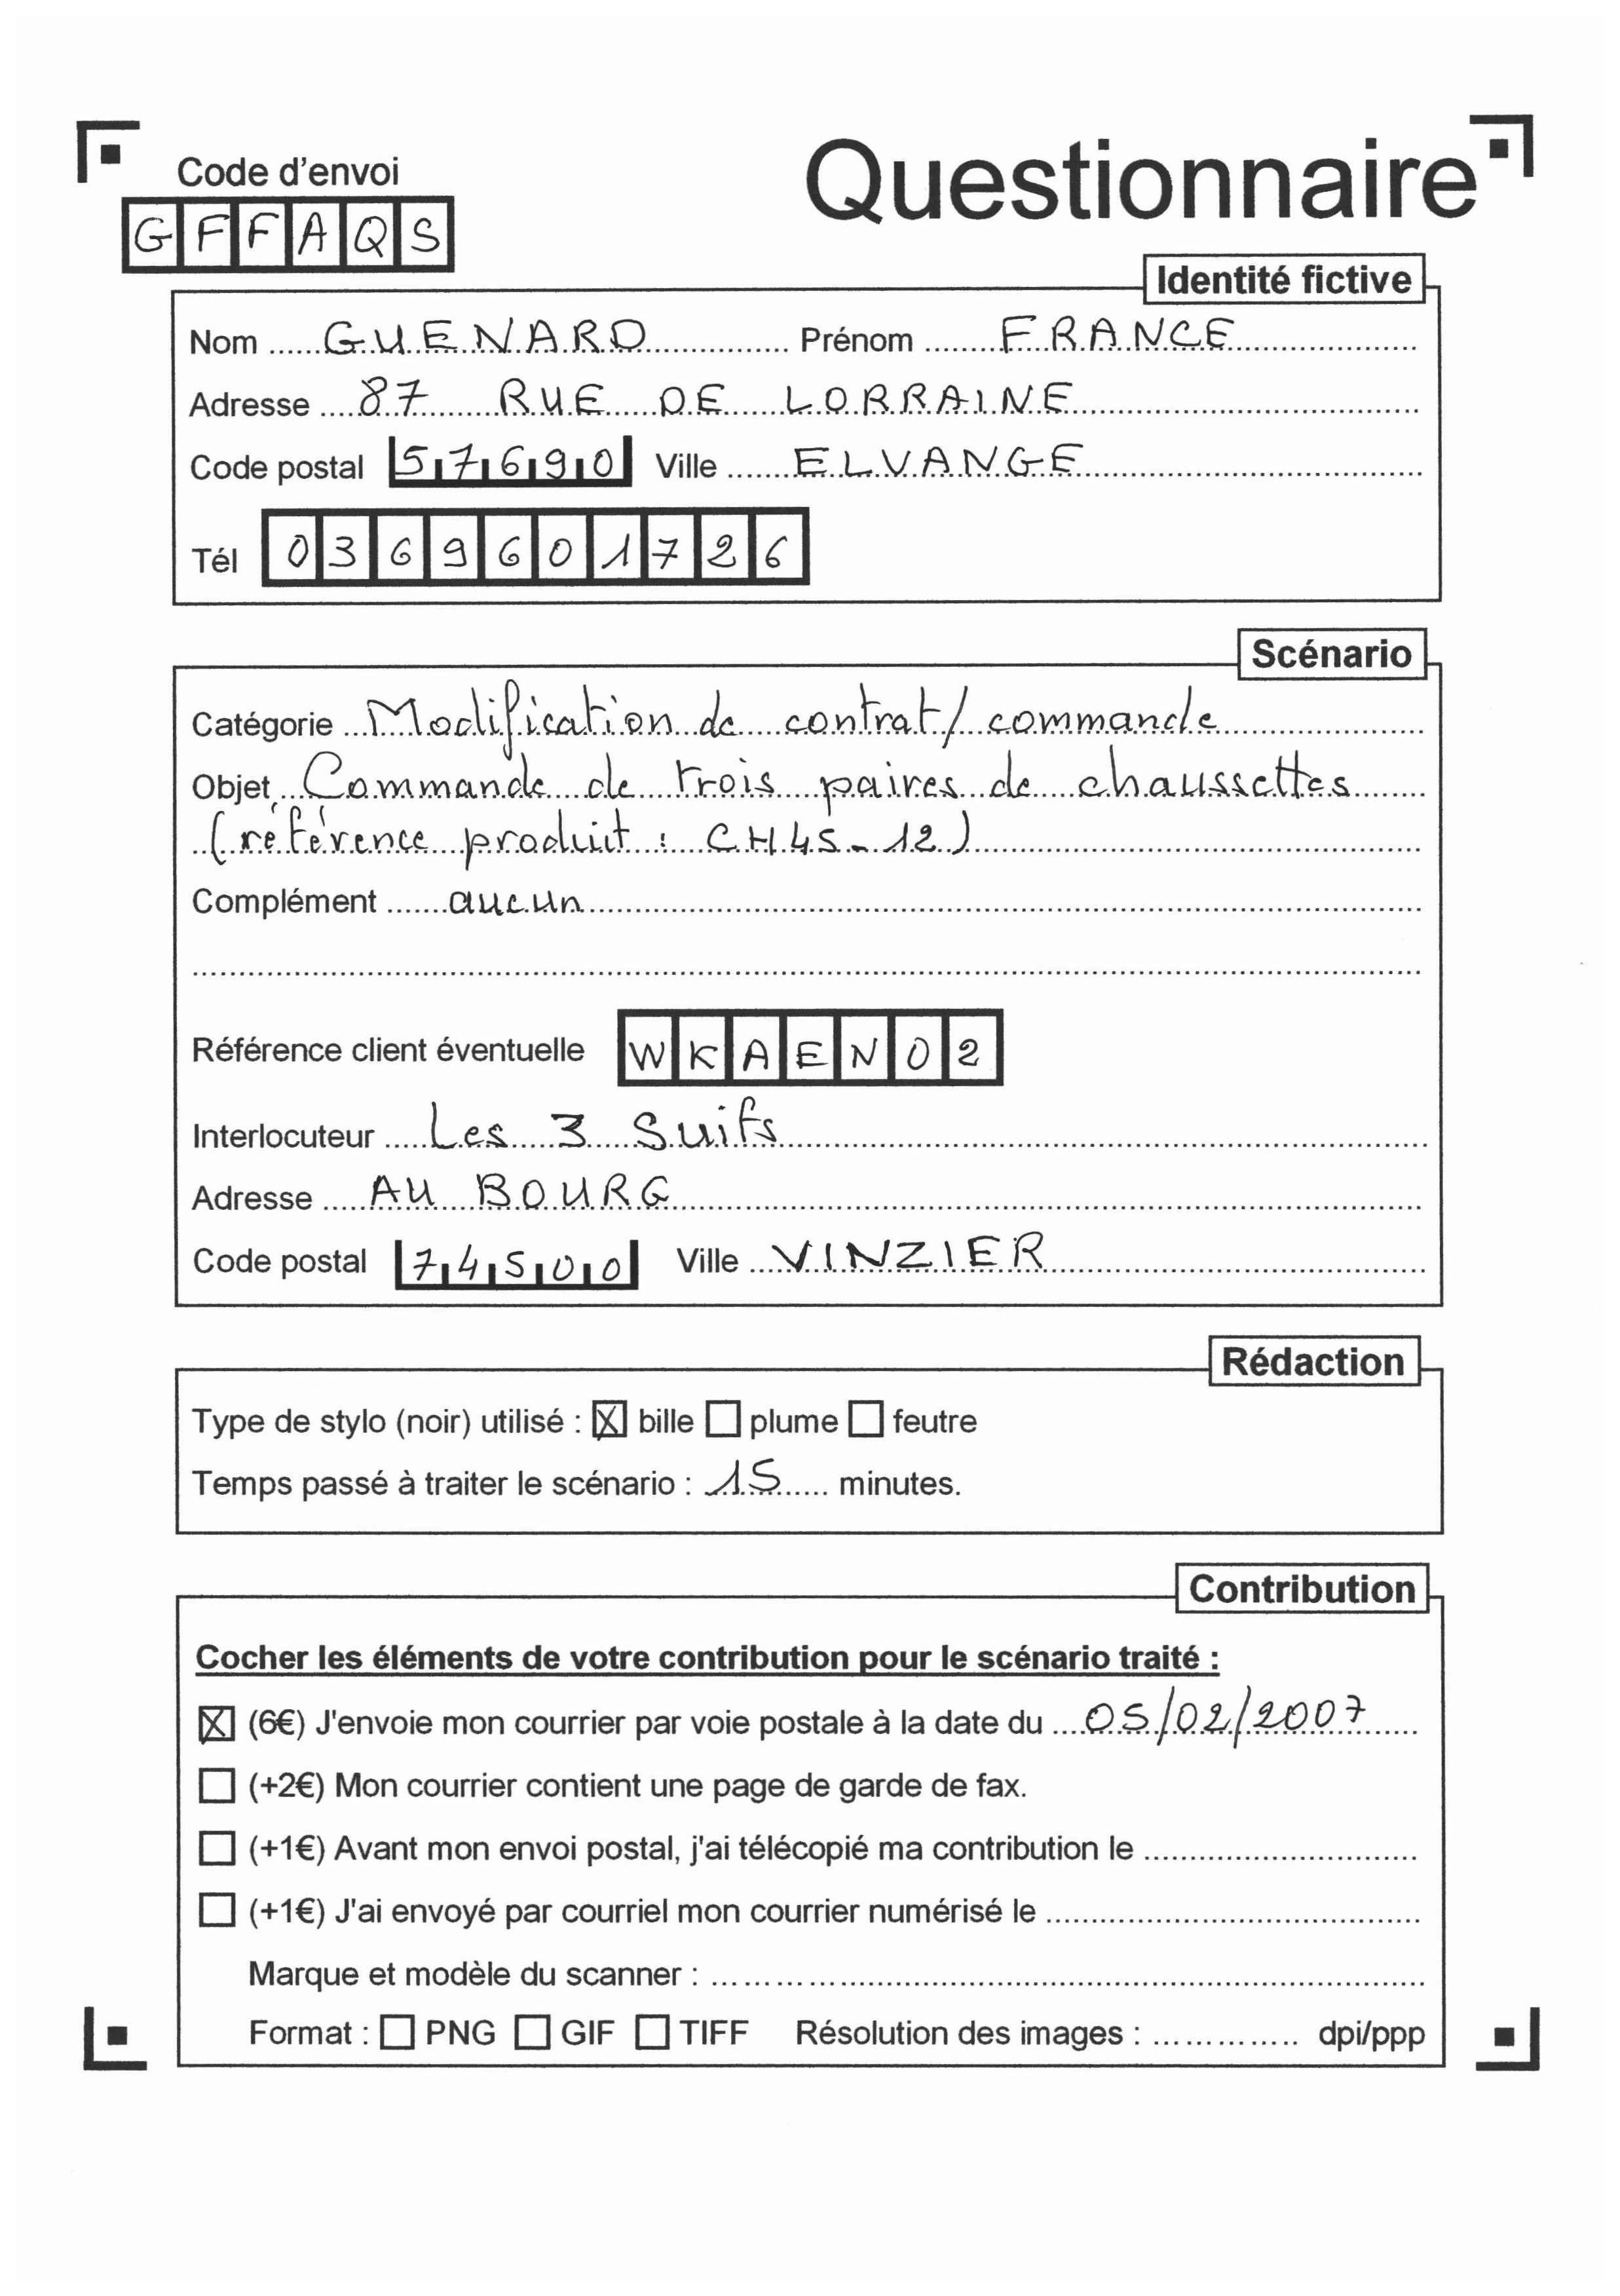 Code d'envoi
Questionnaire
GFFAQS
Identité fictive
Nom GUENARD Prénom FRANCE
Adresse 87 RUE DE LORRAINE
Code postal 57690 Ville ELVANGE
Tél 0369601726
Scénario
Catégorie Modification de contrat/commande
Objet Commande de trois paires de chaussettes
(référence produit : CH45-12)
Complément aucun
Référence client éventuelle WKAEN02
Interlocuteur Les 3 Suifs
Adresse AU BOURG
Code postal 74500 Ville VINZIER
Rédaction
Type de stylo (noir) utilisé : ☒ bille ☐ plume ☐ feutre
Temps passé à traiter le scénario : 15 minutes.
Contribution
Cocher les éléments de votre contribution pour le scénario traité :
☒ (6€) J'envoie mon courrier par voie postale à la date du 05/02/2007
☐ (+2€) Mon courrier contient une page de garde de fax.
☐ (+1€) Avant mon envoi postal, j'ai télécopié ma contribution le
☐ (+1€) J'ai envoyé par courriel mon courrier numérisé le
Marque et modèle du scanner :
Format : ☐ PNG ☐ GIF ☐ TIFF Résolution des images : dpi/ppp